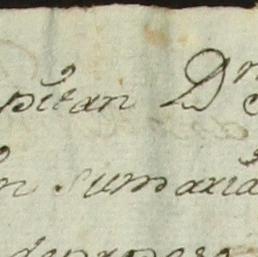 pitan Dn
n sumaria